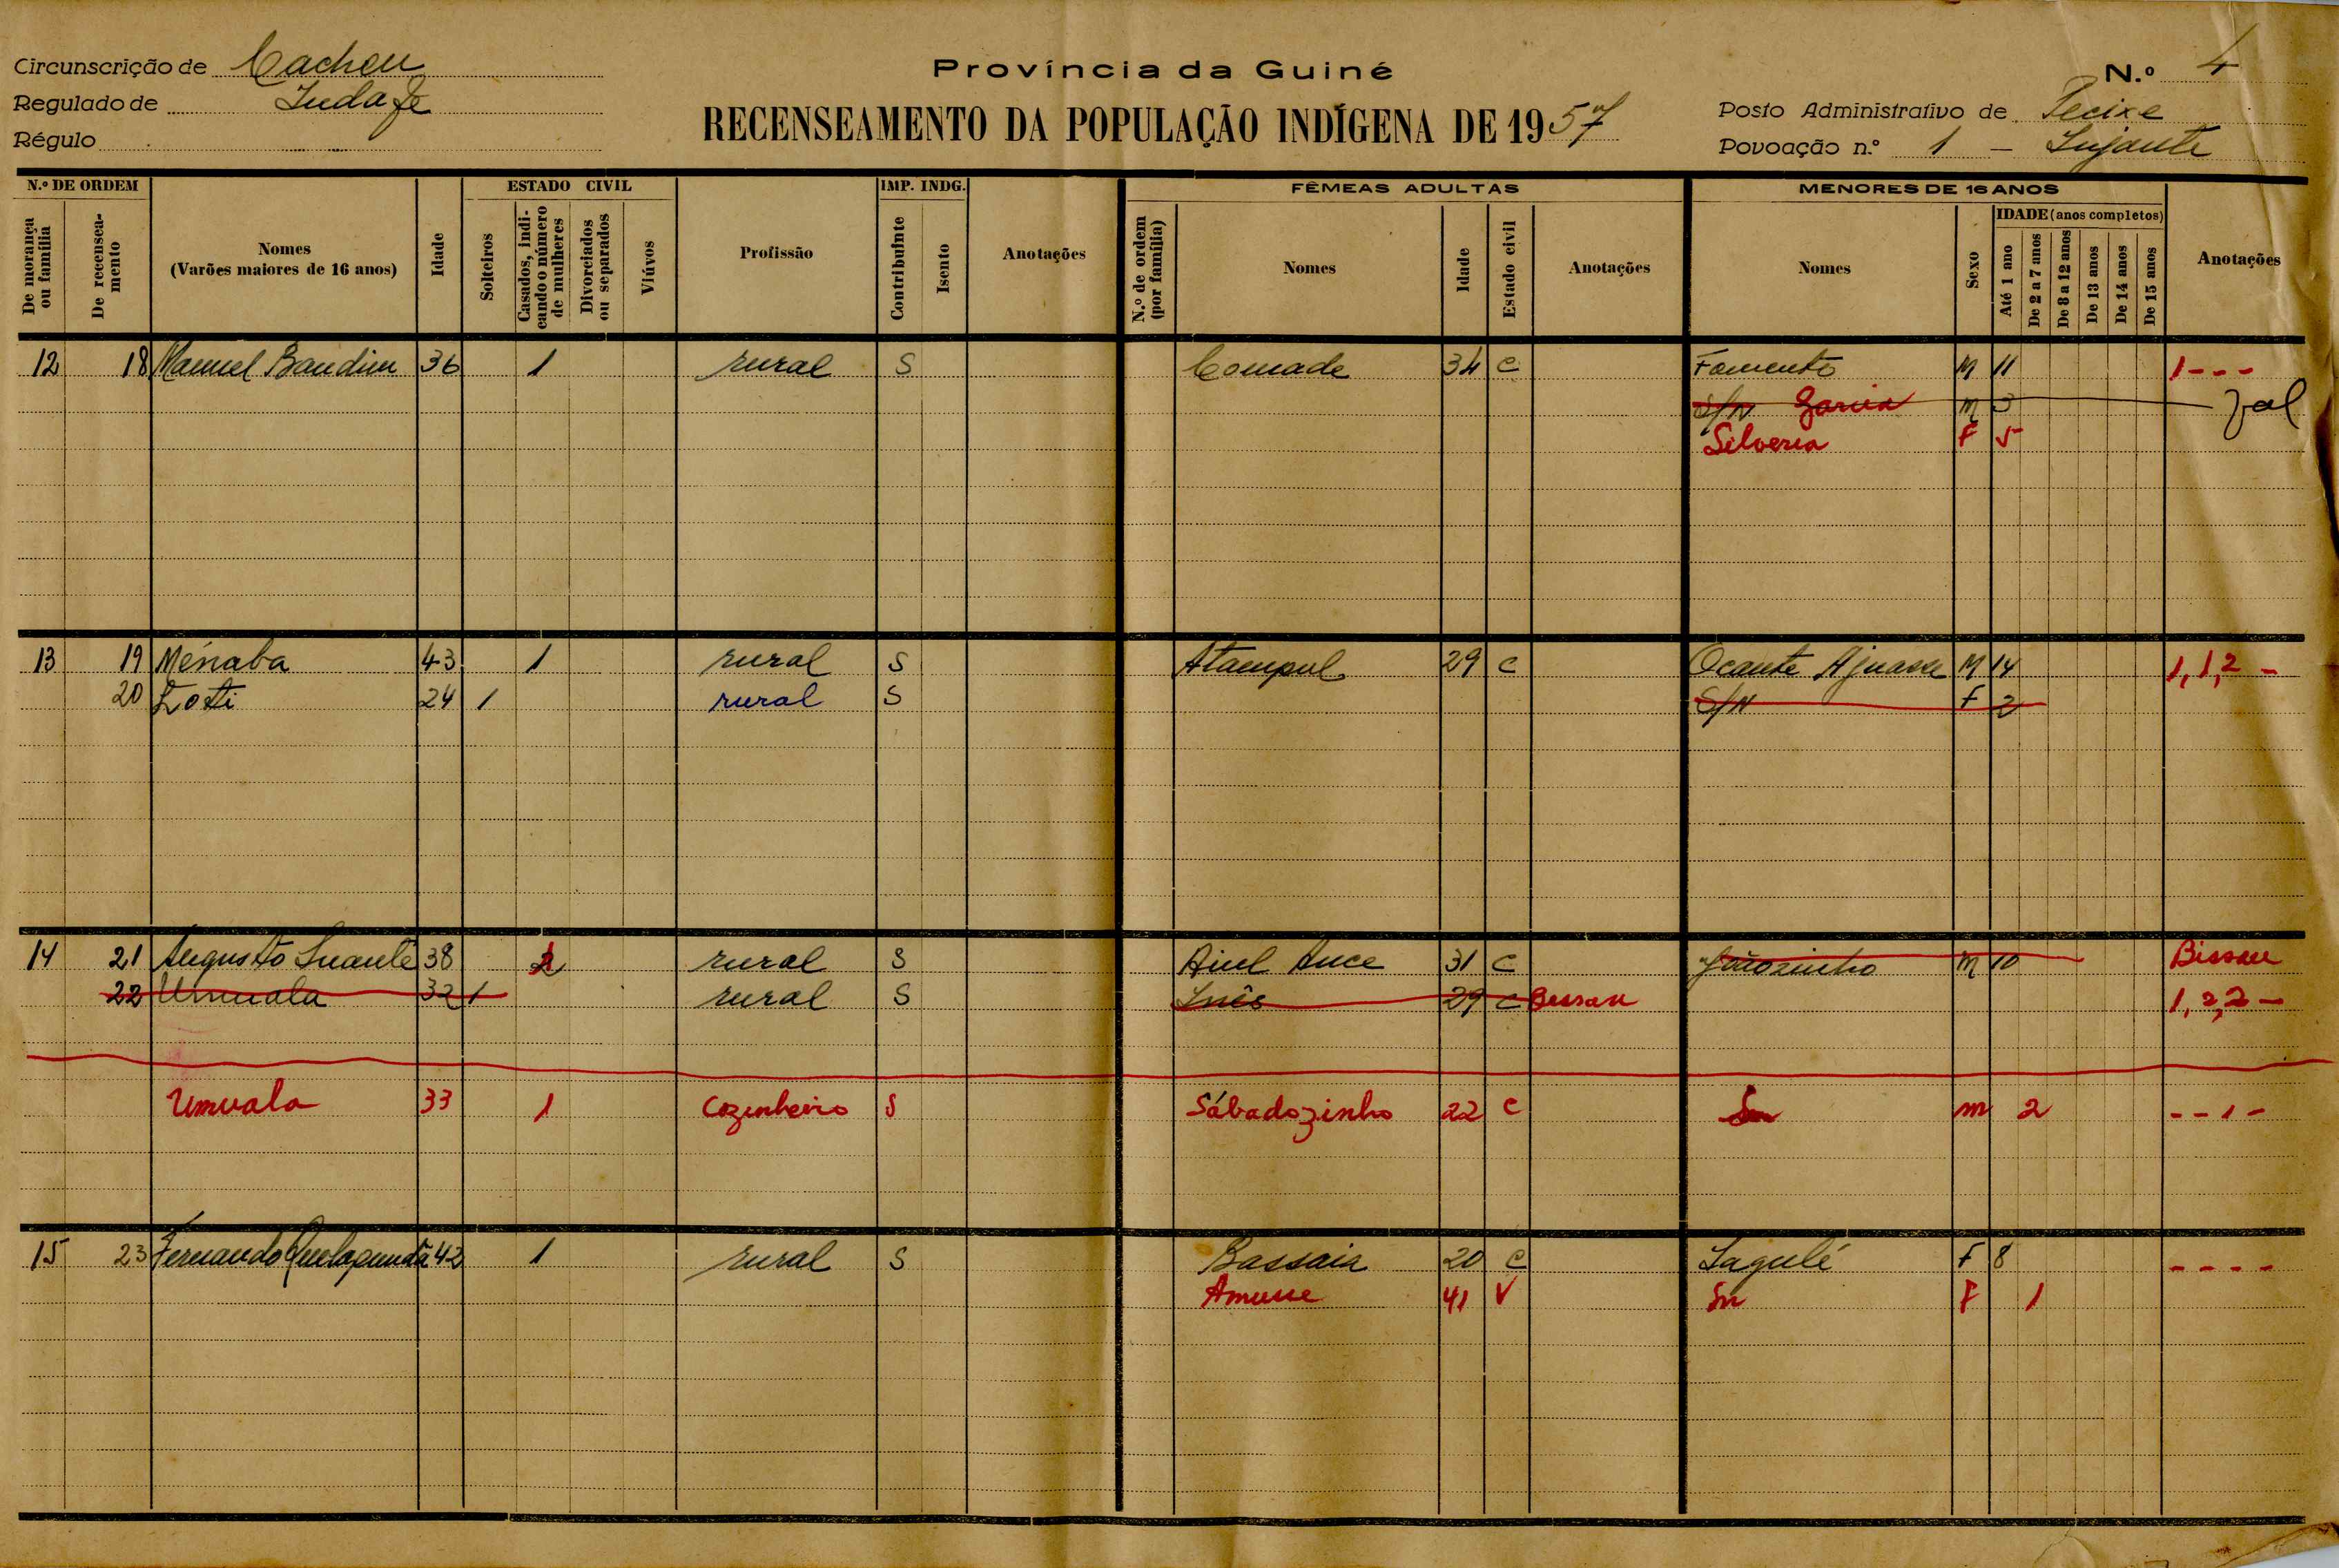 Província da Guiné
RECENSEAMENTO DA POPULAÇÃO INDÍGENA DE 1957
Circunscrição de Cacheu
Regulado de
Régulo
N.º 4
Posto Administrativo de Pecixe
Povoação n.º 1 -
N.º DE ORDEM
De morança ou família
De recenseamento
Nomes
(Varões maiores de 16 anos)
Idade
ESTADO CIVIL
Solteiros
Casados, indicando o número de mulheres
Divorciados ou separados
Viúvos
Profissão
IMP. INDG.
Contribuinte
Isento
Anotações
FÊMEAS ADULTAS
N.º de ordem (por família)
Nomes
Idade
Estado civil
Anotações
MENORES DE 16 ANOS
Nomes
Sexo
IDADE (anos completos)
Até 1 ano
De 2 a 7 anos
De 8 a 12 anos
De 13 anos
De 14 anos
De 15 anos
Anotações
12 18 Manuel Bandim 36 1 rural S Comade 34 C Famento M 11 1 - - -
S/N Garcia M 3
Silveria F 5
13 19 Ménaba 43 1 rural S Atampul 29 C Ocante Ajuasse M 14 1, 1, 2 -
20 Loti 24 1 rural S S/N F 2
14 21 Augusto 38 2 rural S 31 C Joãosinho M 10 Bissau
22 Umuala 32 1 rural S Inês 29 C Bissau 1, 2, 2 -
Umuala 33 1 Cozinheiro S Sábadozinho 22 C Sn m 2 - - 1 -
15 23 Fernando 42 1 rural S Bassaia 20 C F 8 - - - -
41 V Sn F 1